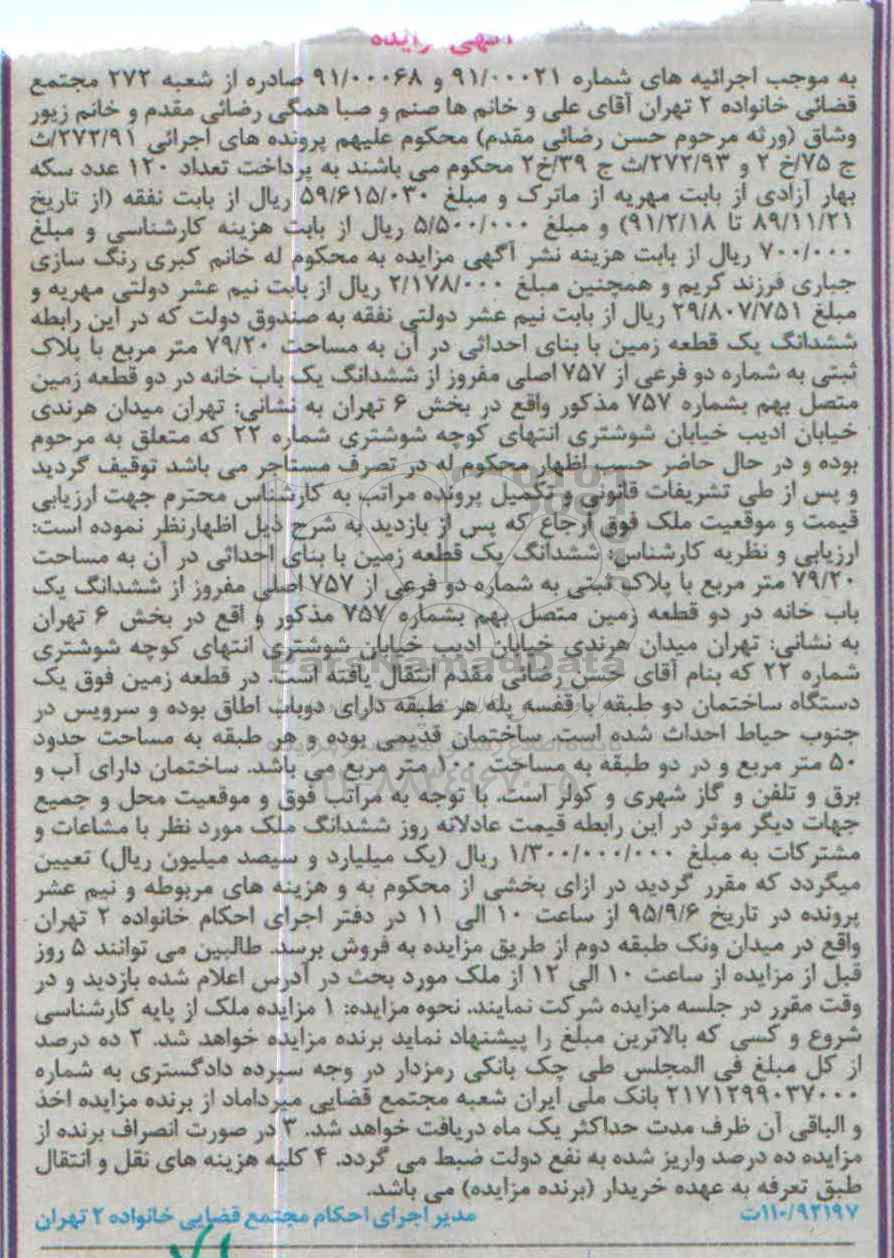 آگهی مزایده
به موجب اجرائیه های شماره ۹۱/۰۰۰۲۱ و ۹۱/۰۰۰۶۸ صادره از شعبه ۲۷۲ مجتمع
قضائی خانواده ۲ تهران آقای علی و خانم ها صنم و صبا همگی رضائی مقدم و خانم زیور
وشاق (ورثه مرحوم حسن رضائی مقدم) محکوم علیهم پرونده های اجرائی ۲۷۲/۹۱/ث
ج ۷۵/خ ۲ و ۲۷۲/۹۳/ث ج ۳۹/خ۲ محکوم می باشند به پرداخت تعداد ۱۲۰ عدد سکه
بهار آزادی از بابت مهریه از ماترک و مبلغ ۵۹/۶۱۵/۰۳۰ ریال از بابت نفقه (از تاریخ
۸۹/۱۱/۲۱ تا ۹۱/۲/۱۸) و مبلغ ۵/۵۰۰/۰۰۰ ریال از بابت هزینه کارشناسی و مبلغ
۷۰۰/۰۰۰ ریال از بابت هزینه نشر آگهی مزایده به محکوم له خانم کبری رنگ سازی
جباری فرزند کریم و همچنین مبلغ ۲/۱۷۸/۰۰۰ ریال از بابت نیم عشر دولتی مهریه و
مبلغ ۲۹/۸۰۷/۷۵۱ ریال از بابت نیم عشر دولتی نفقه به صندوق دولت که در این رابطه
ششدانگ یک قطعه زمین با بنای احداثی در آن به مساحت ۷۹/۲۰ متر مربع با پلاک
ثبتی به شماره دو فرعی از ۷۵۷ اصلی مفروز از ششدانگ یک باب خانه در دو قطعه زمین
متصل بهم بشماره ۷۵۷ مذکور واقع در بخش ۶ تهران به نشانی: تهران میدان هرندی
خیابان ادیب خیابان شوشتری انتهای کوچه شوشتری شماره ۲۲ که متعلق به مرحوم
بوده و در حال حاضر حسب اظهار محکوم له در تصرف مستاجر می باشد توقیف گردید
و پس از طی تشریفات قانونی و تکمیل پرونده مراتب به کارشناس محترم جهت ارزیابی
قیمت و موقعیت ملک فوق ارجاع که پس از بازدید به شرح ذیل اظهارنظر نموده است:
ارزیابی و نظریه کارشناس: ششدانگ یک قطعه زمین با بنای احداثی در آن به مساحت
۷۹/۲۰ متر مربع با پلاک ثبتی به شماره دو فرعی از ۷۵۷ اصلی مفروز از ششدانگ یک
باب خانه در دو قطعه زمین متصل بهم بشماره ۷۵۷ مذکور و اقع در بخش ۶ تهران
به نشانی: تهران میدان هرندی خیابان ادیب خیابان شوشتری انتهای کوچه شوشتری
شماره ۲۲ که بنام آقای حسن رضائی مقدم انتقال یافته است. در قطعه زمین فوق یک
دستگاه ساختمان دو طبقه با قفسه پله هر طبقه دارای دوباب اطاق بوده و سرویس در
جنوب حیاط احداث شده است. ساختمان قدیمی بوده و هر طبقه به مساحت حدود
۵۰ متر مربع و در دو طبقه به مساحت ۱۰۰ متر مربع می باشد. ساختمان دارای آب و
برق و تلفن و گاز شهری و کولر است. با توجه به مراتب فوق و موقعیت محل و جمیع
جهات دیگر موثر در این رابطه قیمت عادلانه روز ششدانگ ملک مورد نظر با مشاعات و
مشترکات به مبلغ ۱/۳۰۰/۰۰۰/۰۰۰ ریال (یک میلیارد و سیصد میلیون ریال) تعیین
میگردد که مقرر گردید در ازای بخشی از محکوم به و هزینه های مربوطه و نیم عشر
پرونده در تاریخ ۹۵/۹/۶ از ساعت ۱۰ الی ۱۱ در دفتر اجرای احکام خانواده ۲ تهران
واقع در میدان ونک طبقه دوم از طریق مزایده به فروش برسد. طالبین می توانند ۵ روز
قبل از مزایده از ساعت ۱۰ الی ۱۲ از ملک مورد بحث در آدرس اعلام شده بازدید و در
وقت مقرر در جلسه مزایده شرکت نمایند. نحوه مزایده: ۱ مزایده ملک از پایه کارشناسی
شروع و کسی که بالاترین مبلغ را پیشنهاد نماید برنده مزایده خواهد شد. ۲ ده درصد
از کل مبلغ فی المجلس طی چک بانکی رمزدار در وجه سپرده دادگستری به شماره
۲۱۷۱۲۹۹۰۳۷۰۰۰ بانک ملی ایران شعبه مجتمع قضایی میرداماد از برنده مزایده اخذ
و الباقی آن ظرف مدت حداکثر یک ماه دریافت خواهد شد. ۳ در صورت انصراف برنده از
مزایده ده درصد واریز شده به نفع دولت ضبط می گردد. ۴ کلیه هزینه های نقل و انتقال
طبق تعرفه به عهده خریدار (برنده مزایده) می باشد.
۱۱۰/۹۲۱۹۷ت مدیر اجرای احکام مجتمع قضایی خانواده ۲ تهران
ParsNamadData